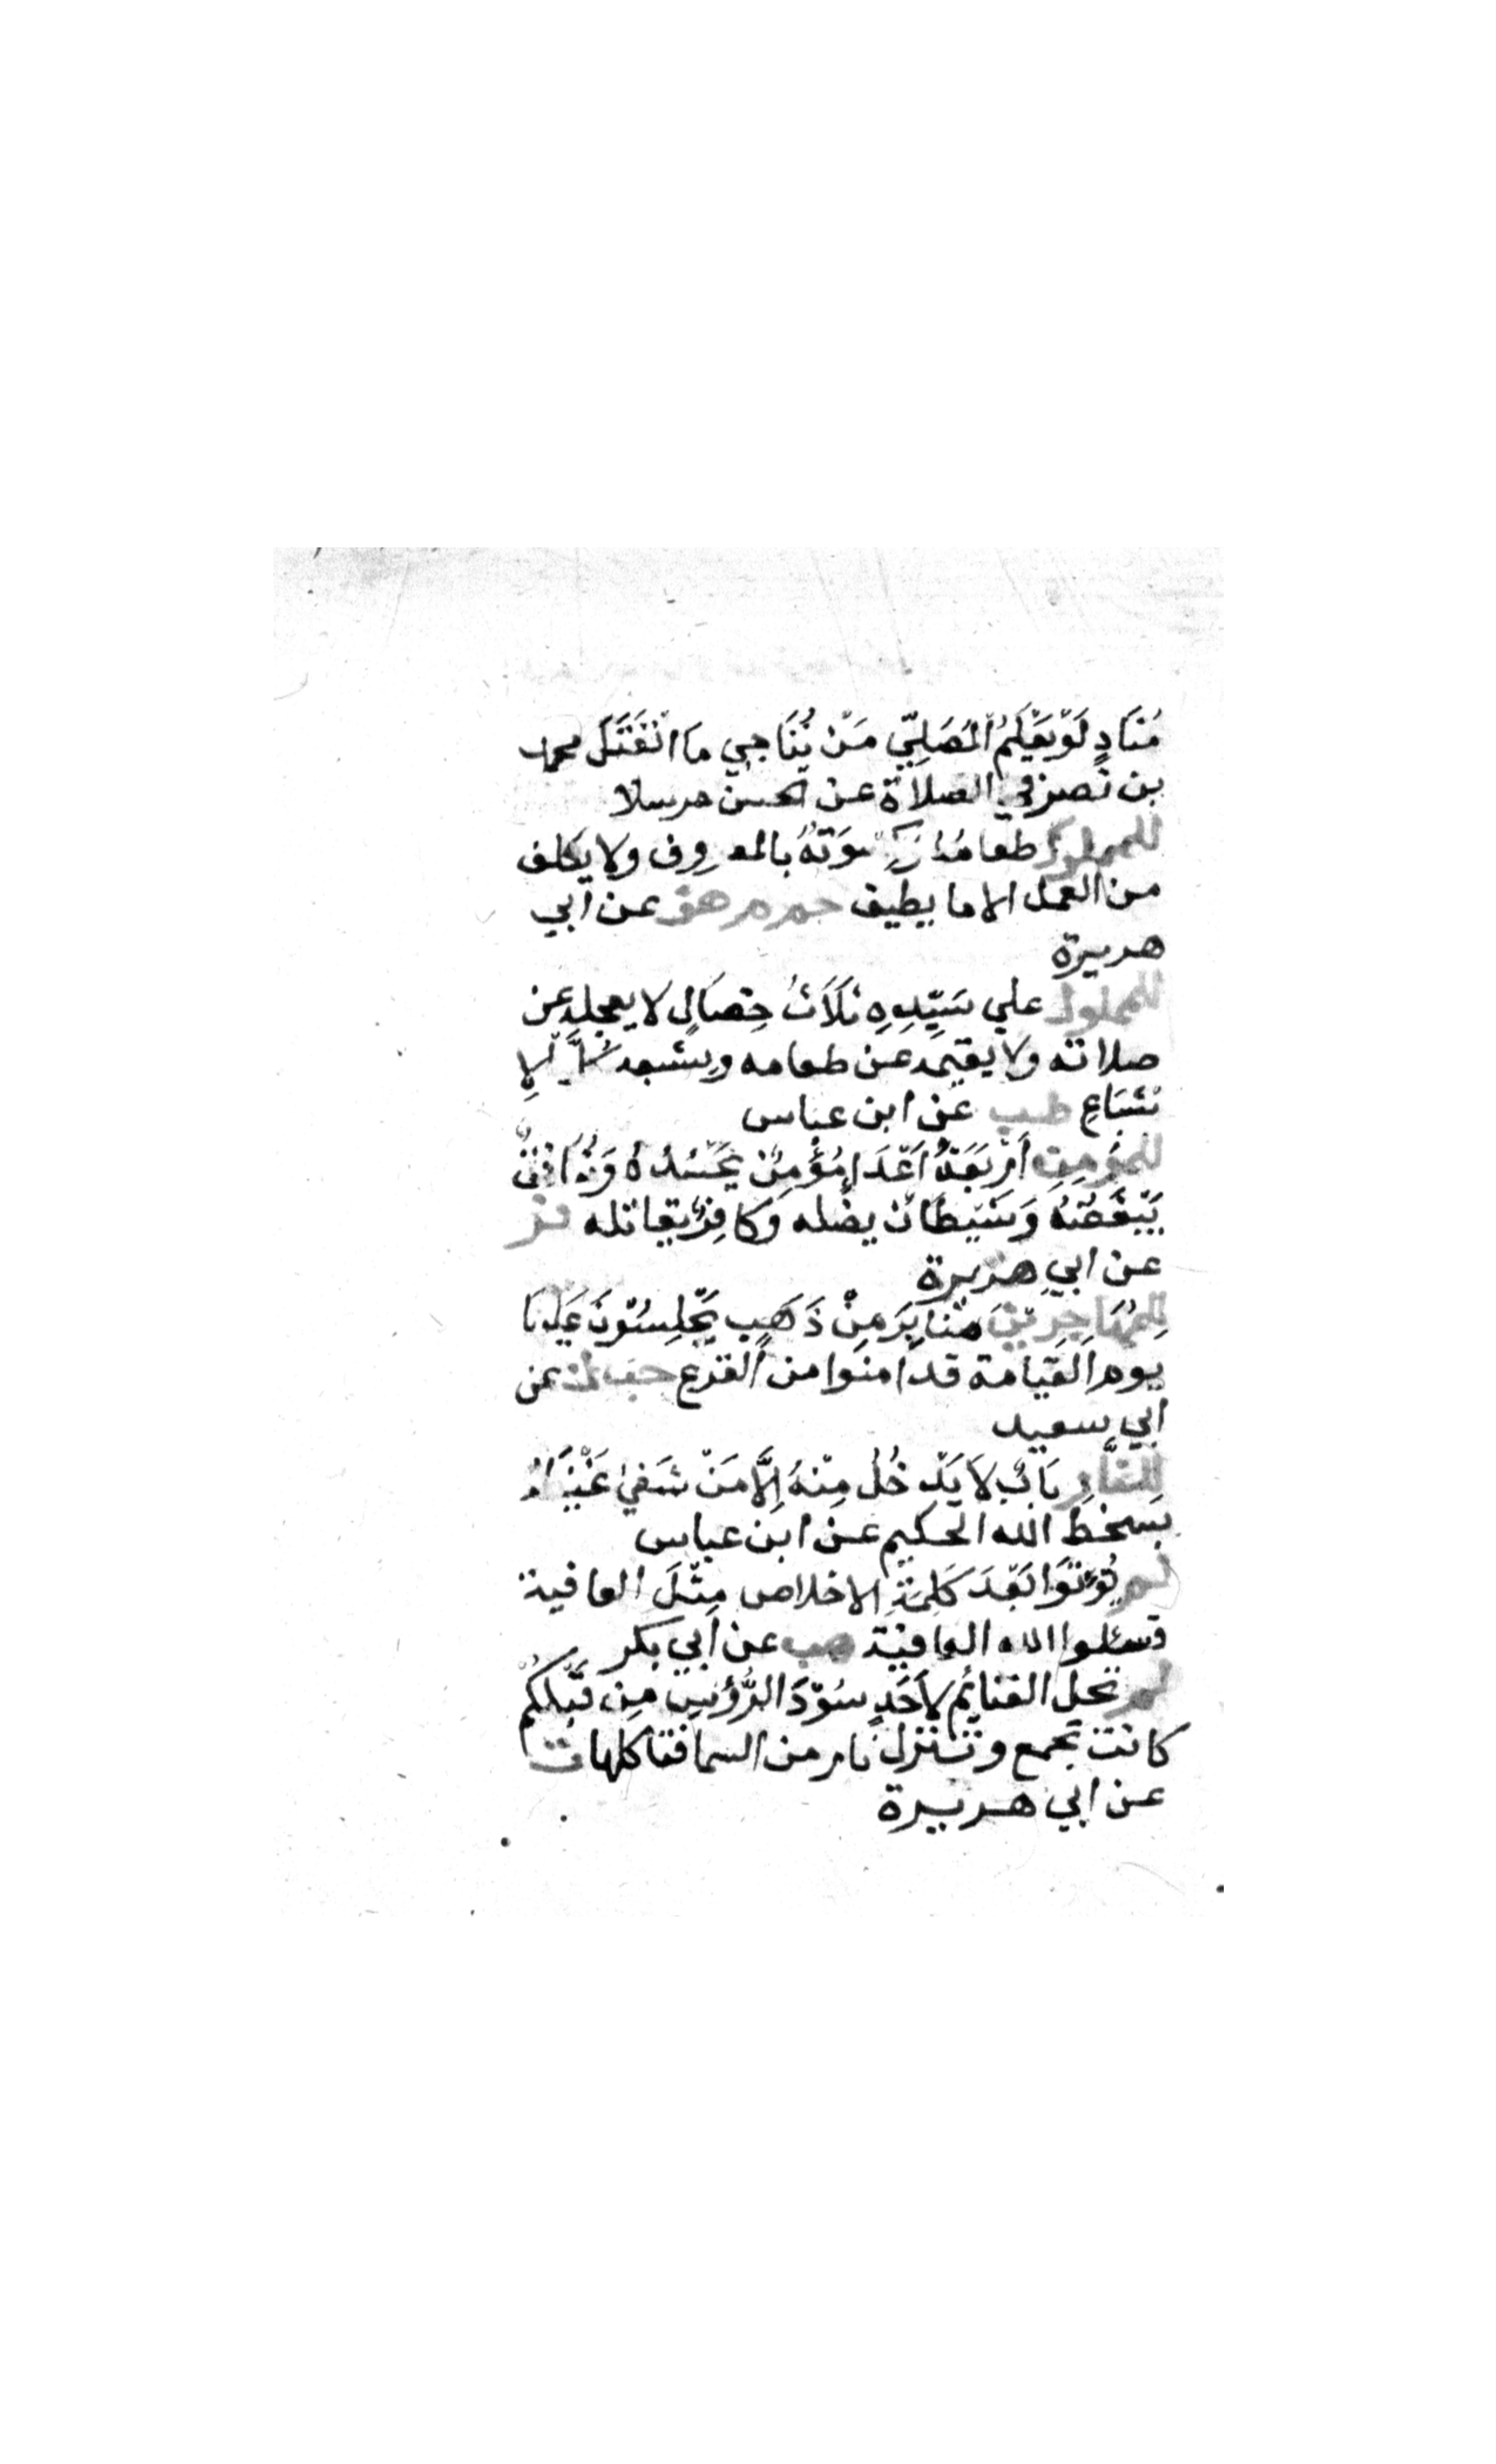 مُنَادٍ لَوْ يَعْلَمُ الْمُصَلِّي مَنْ يُنَاجِي مَا انْفَتَلَ محمد
بن نصر في الصلاة عن الحسن مرسلا
للمملوك طعامه وكِسْوَتُهُ بالمعروف ولا يكلف
من العمل الا ما يطيق حم م هق عن أبي
هريرة
للمملوك علي سَيِّدِهِ ثَلَاثُ خِصَالٍ لا يعجله عن
صلاته ولا يقيمه عن طعامه ويشبعه كُلَّ الإِ
شْبَاعِ طب عن ابن عباس
للمؤمِنِ أَرْبَعَةُ أَعْدَاءِ مُؤْمِنٌ يَحْسُدُهُ وَمُنَافِقٌ
يَبْغَضُهُ وَشَيْطَانٌ يضله وَكَافِرٌ يقاتله فر
عن ابي هريرة
لِلمُهَاجِرِيْنَ مَنَابِرَ مِنْ ذَهَبٍ يَجْلِسُوْنَ عَلَيْهَا
يوم القيامة قد امنوا من الفزع حب ك عن
ابي سعيد
لِلنَّارِ بَابٌ لَا يَدْخُلُ مِنْهُ إِلَّا مَنْ شَفَى غَيْظَهُ
بسخط الله الحكيم عن ابن عباس
لم تُؤْتَوْا بَعْدَ كَلِمَةِ الاخلاص مِثْلَ العافية
فسئلوا الله العافية هب عن أبي بكر
لم تحل الغنائم لِأَحَدٍ سُوْدَ الرُّؤُسِ مِنْ قَبْلِكُمْ
كانت تجمع وتنزل نار من السما فتاكلها ت
عن ابي هريرة